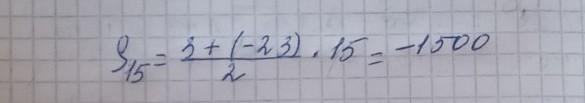 S₁₅ = (3 + (-23))/2 · 15 = -1500